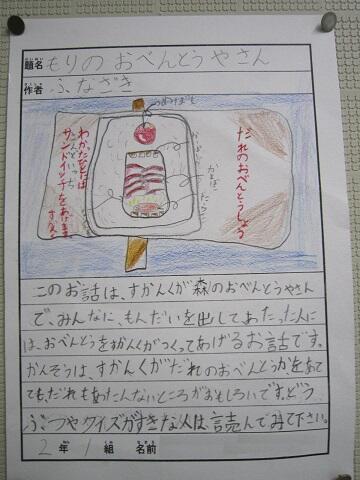 題名 もりの おべんとうやさん
作者 ふなざき
だれのおべんとうでしょう
わかったひとには
サンドイッチをあげます
このお話は、すかんくが森のおべんとうやさん
で、みんなに、もんだいを出してあたった人に
は、おべんとうをすかんくがつくってあげるお話です。
かんそうは、すかんくがだれのおべんとうかをあて
てもだれもあたんないところがおもしろいです。どう
ぶつやクイズがすきな人は読んでみて下さい。
2年 1組 名前